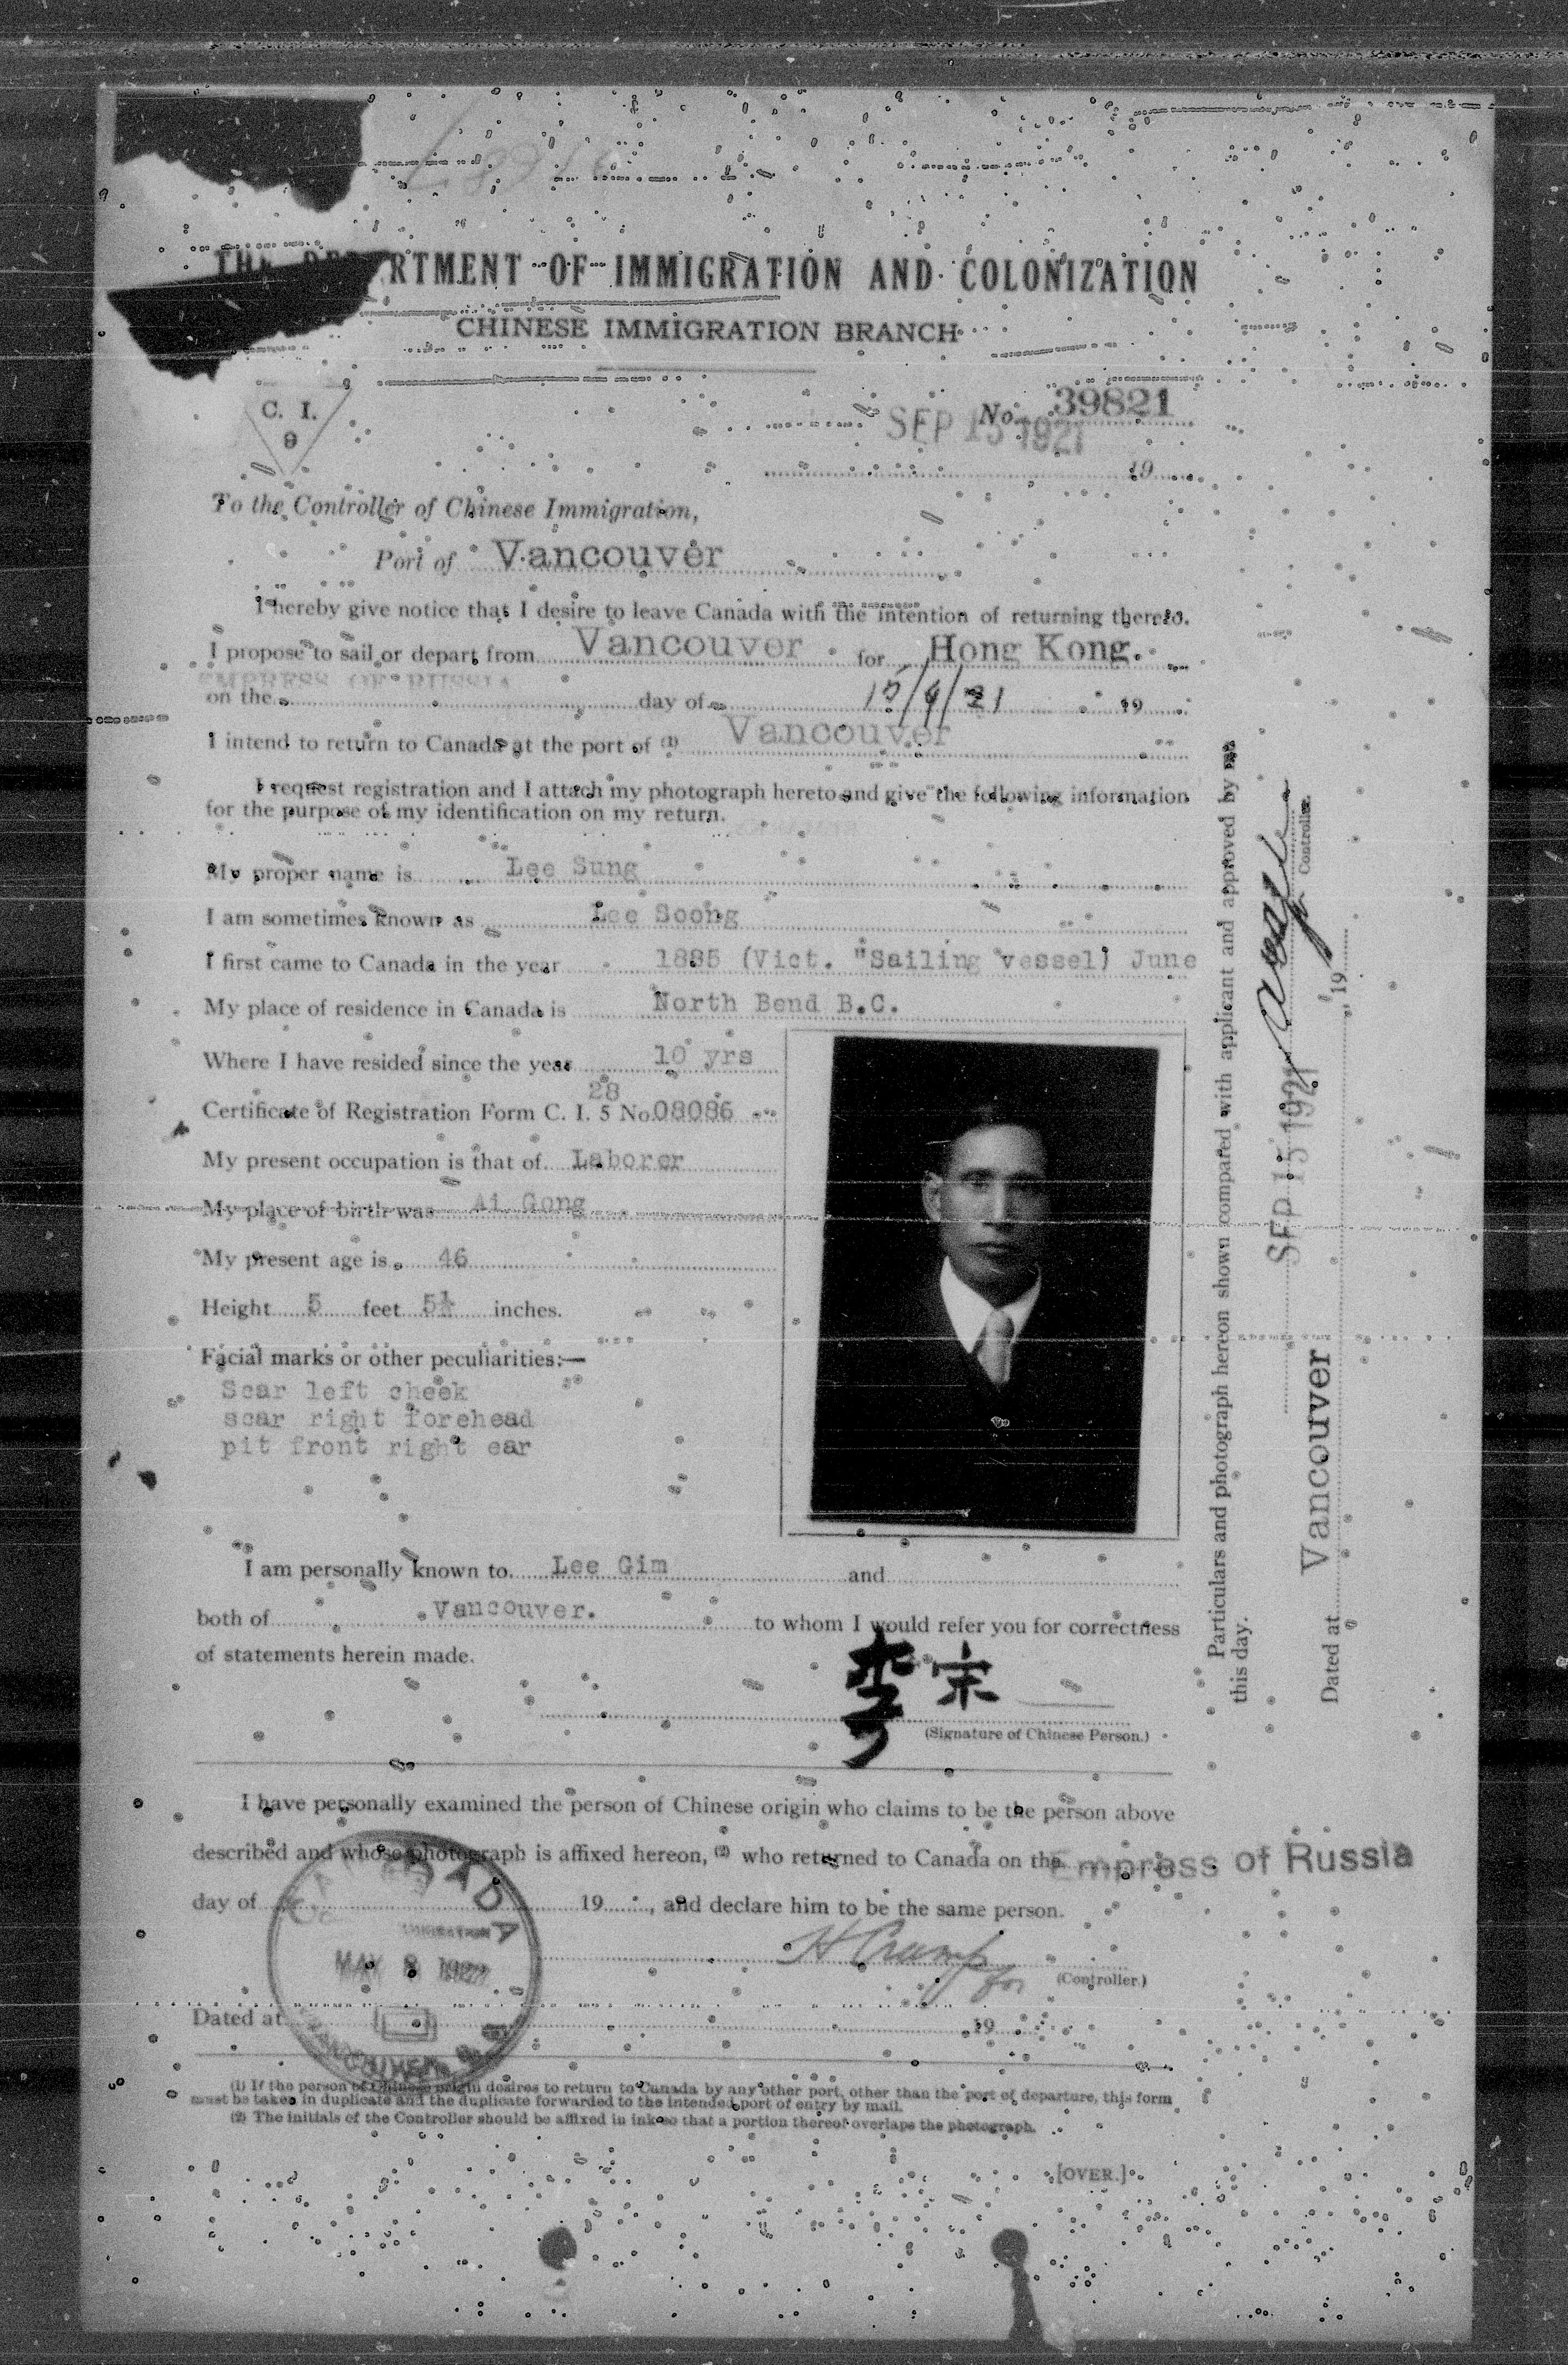 THE DEPARTMENT OF IMMIGRATION AND COLONIZATION
CHINESE IMMIGRATION BRANCH
C. I.
9
No. 39821
SEP 15 1921
19
To the Controller of Chinese Immigration,
Port of Vancouver
I hereby give notice that I desire to leave Canada with the intention of returning thereto.
I propose to sail or depart from Vancouver for Hong Kong.
EMPRESS OF RUSSIA
on the day of 15/9/21 19
I intend to return to Canada at the port of (1) Vancouver
I request registration and I attach my photograph hereto and give the following information
for the purpose of my identification on my return.
My proper name is Lee Sung
I am sometimes known as Lee Soong
I first came to Canada in the year 1885 (Vict. "Sailing vessel) June
My place of residence in Canada is North Bend B.C.
Where I have resided since the year 10 yrs
28
Certificate of Registration Form C. I. 5 No. 08086
My present occupation is that of Laborer
My place of birth was Ai Gong
My present age is 46
Height 5 feet 5½ inches.
Facial marks or other peculiarities:—
Scar left cheek
scar right forehead
pit front right ear
I am personally known to Lee Gim and
both of Vancouver. to whom I would refer you for correctness
of statements herein made.
李宗
(Signature of Chinese Person.)
I have personally examined the person of Chinese origin who claims to be the person above
described and whose photograph is affixed hereon, (2) who returned to Canada on the Empress of Russia
day of 19 , and declare him to be the same person.
H Crump
for (Controller.)
Dated at 19
CANADA
IMMIGRATION
MAY 8 1922
VANCOUVER B.C.
(1) If the person of Chinese origin desires to return to Canada by any other port, other than the port of departure, this form
must be taken in duplicate and the duplicate forwarded to the intended port of entry by mail.
(2) The initials of the Controller should be affixed in ink so that a portion thereof overlaps the photograph.
[OVER.]
Particulars and photograph hereon shown compared with applicant and approved by me
this day.
SEP 15 1921
Controller.
Dated at Vancouver 19